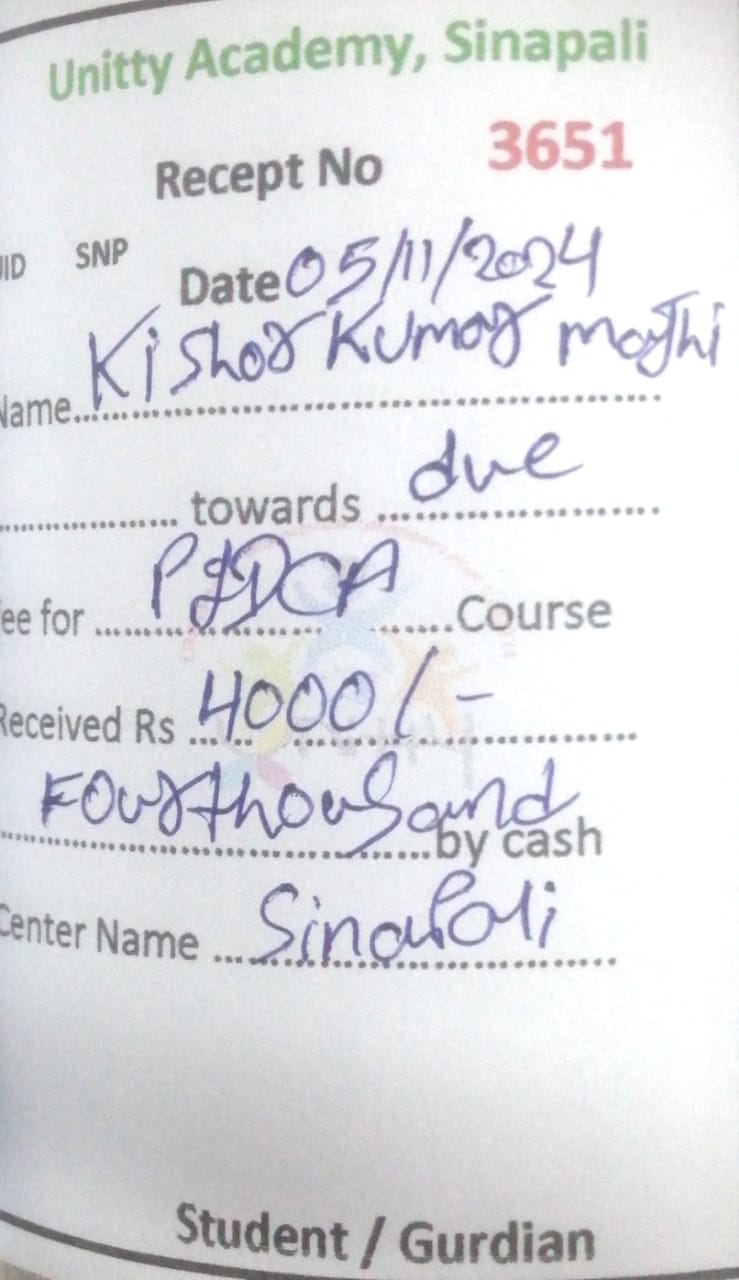 Unitty Academy, Sinapali
Recept No 3651
SNP
Date 05/11/2024
Name Kishor Kumar majhi
towards due
ee for PGDCA Course
Received Rs 4000/-
Fourthousand by cash
Center Name Sinapali
Student / Gurdian